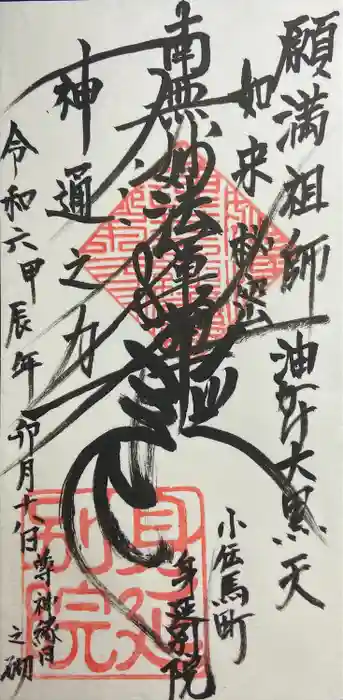 願満祖師 油かけ大黒天
如来秘密
南無妙法蓮華経
神通之力
令和六甲辰年 卯月十八日 尊神縁日之砌
小伝馬町
身延別院
身延別院